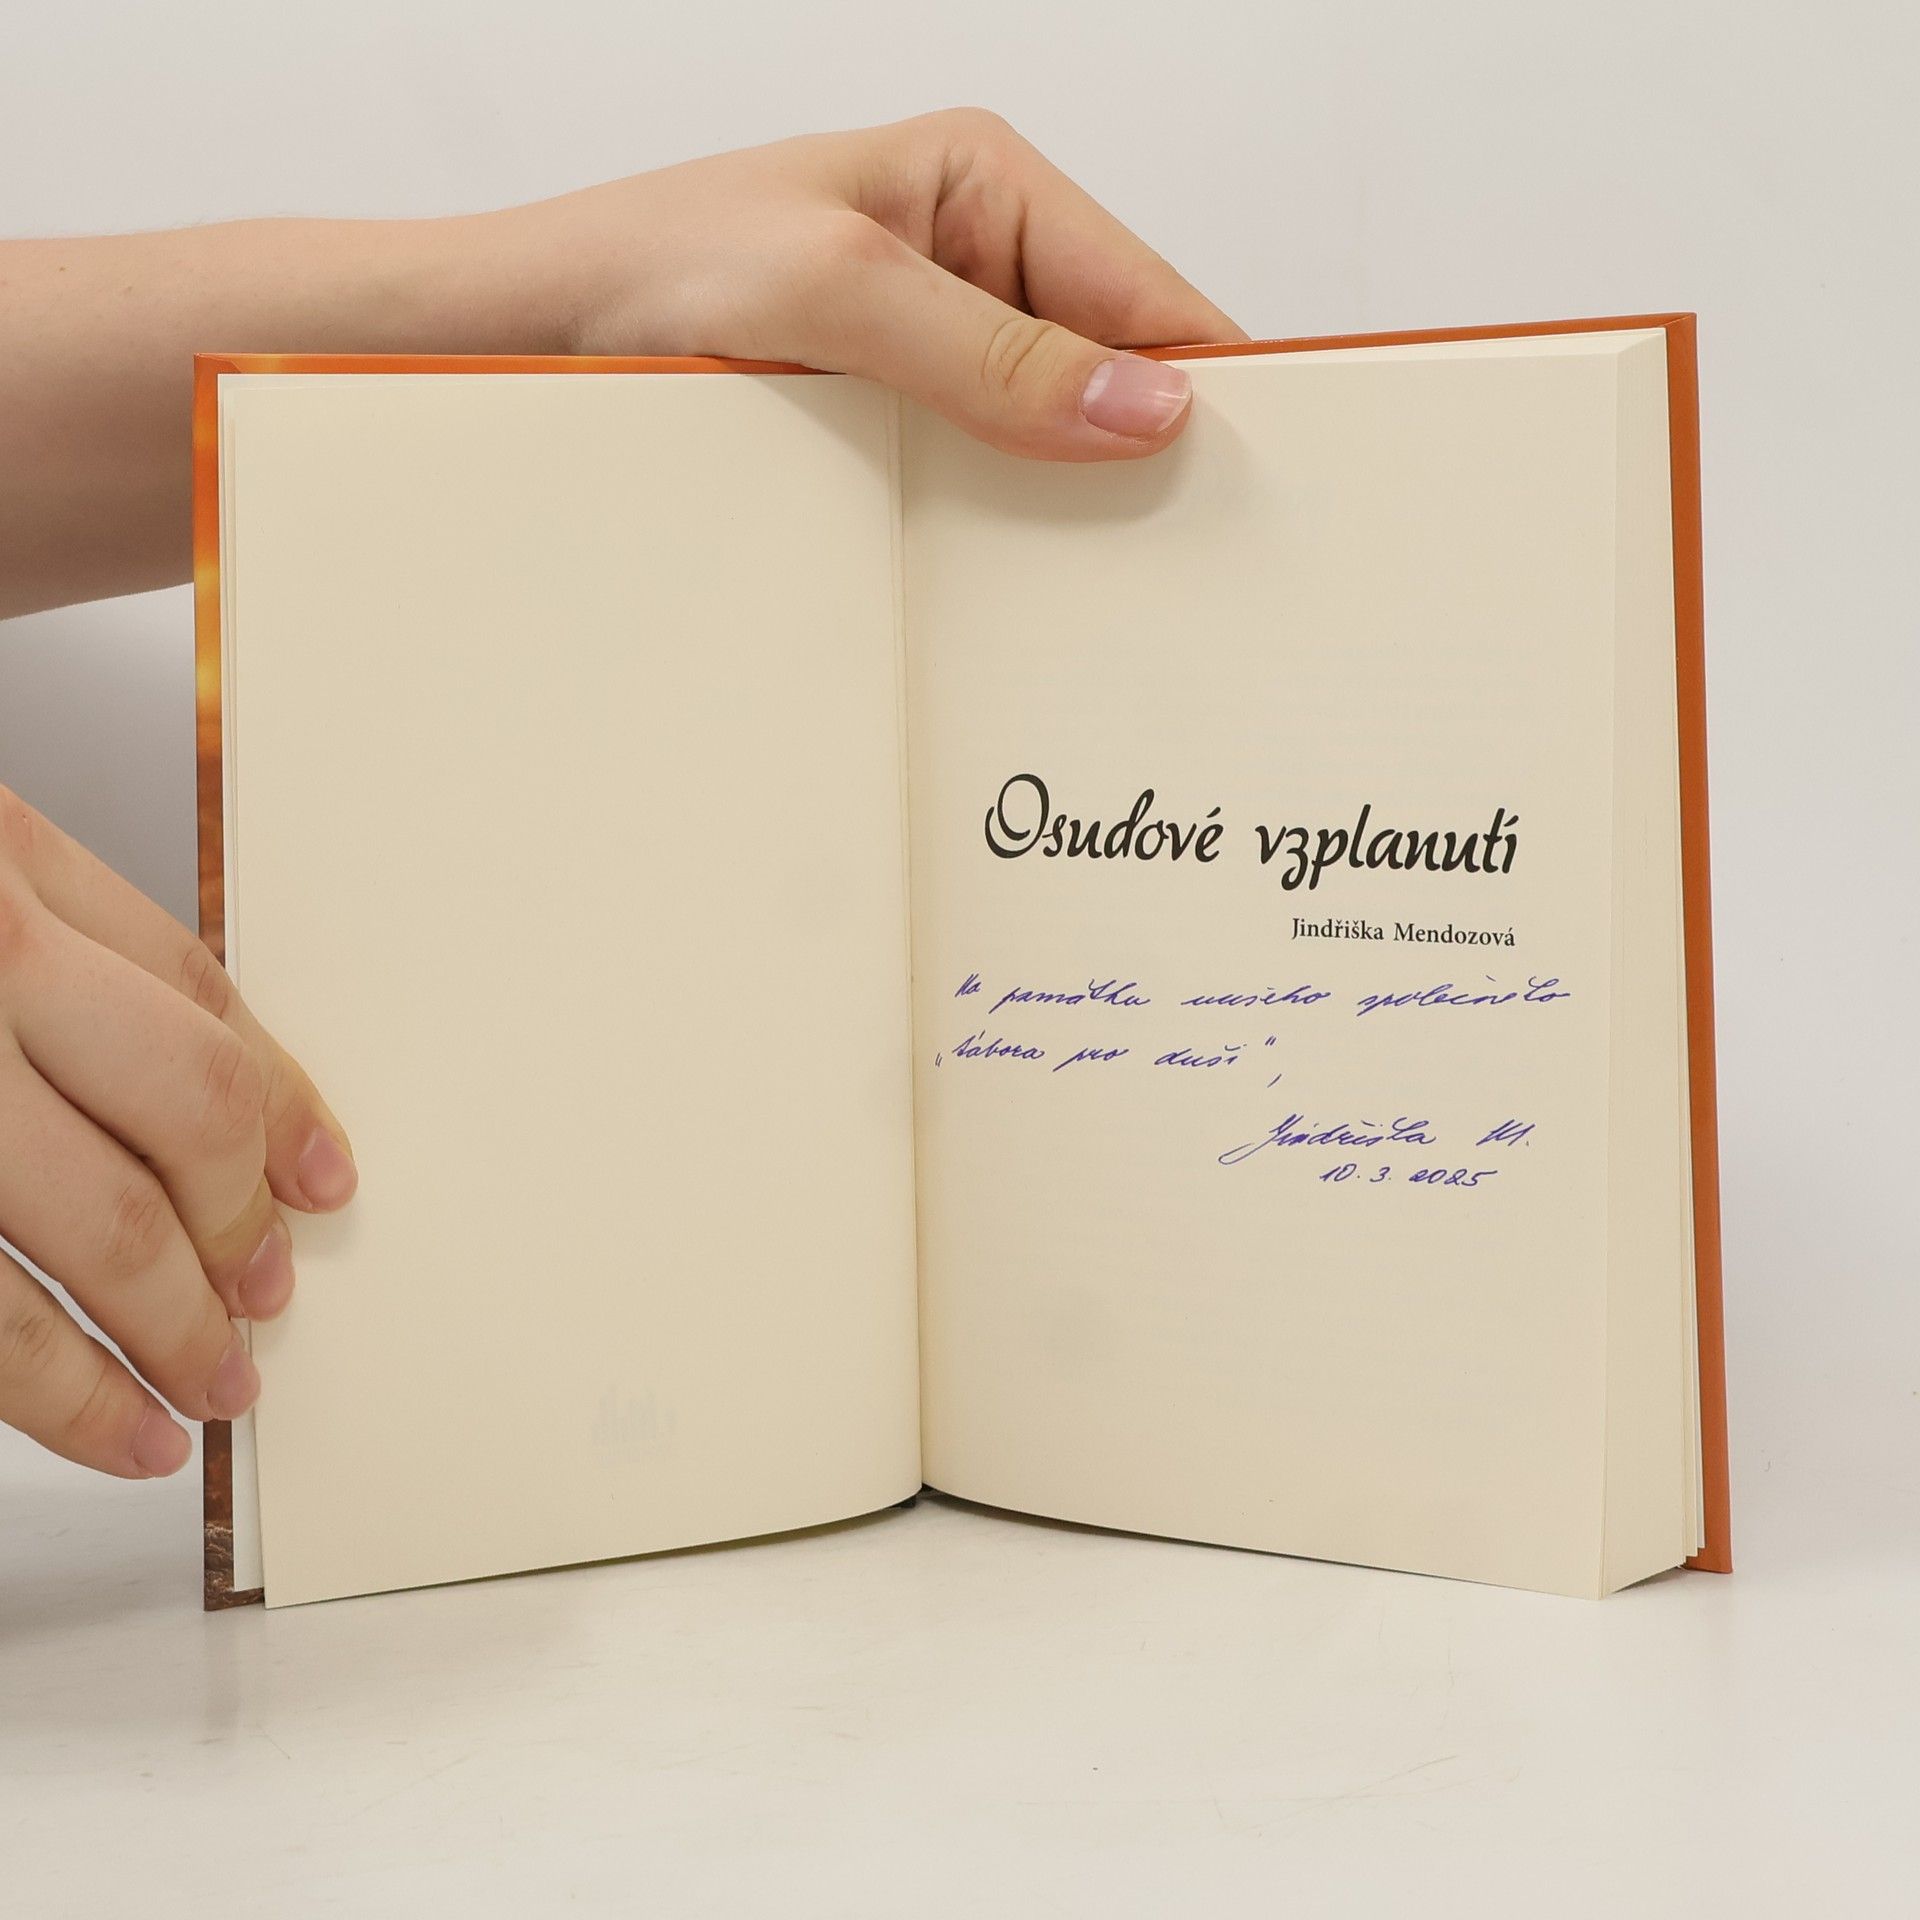 Osudové vzplanutí
Jindřiška Mendozová
Na památku našeho společného
„tábora pro duši",
Jindřiška M.
10. 3. 2025